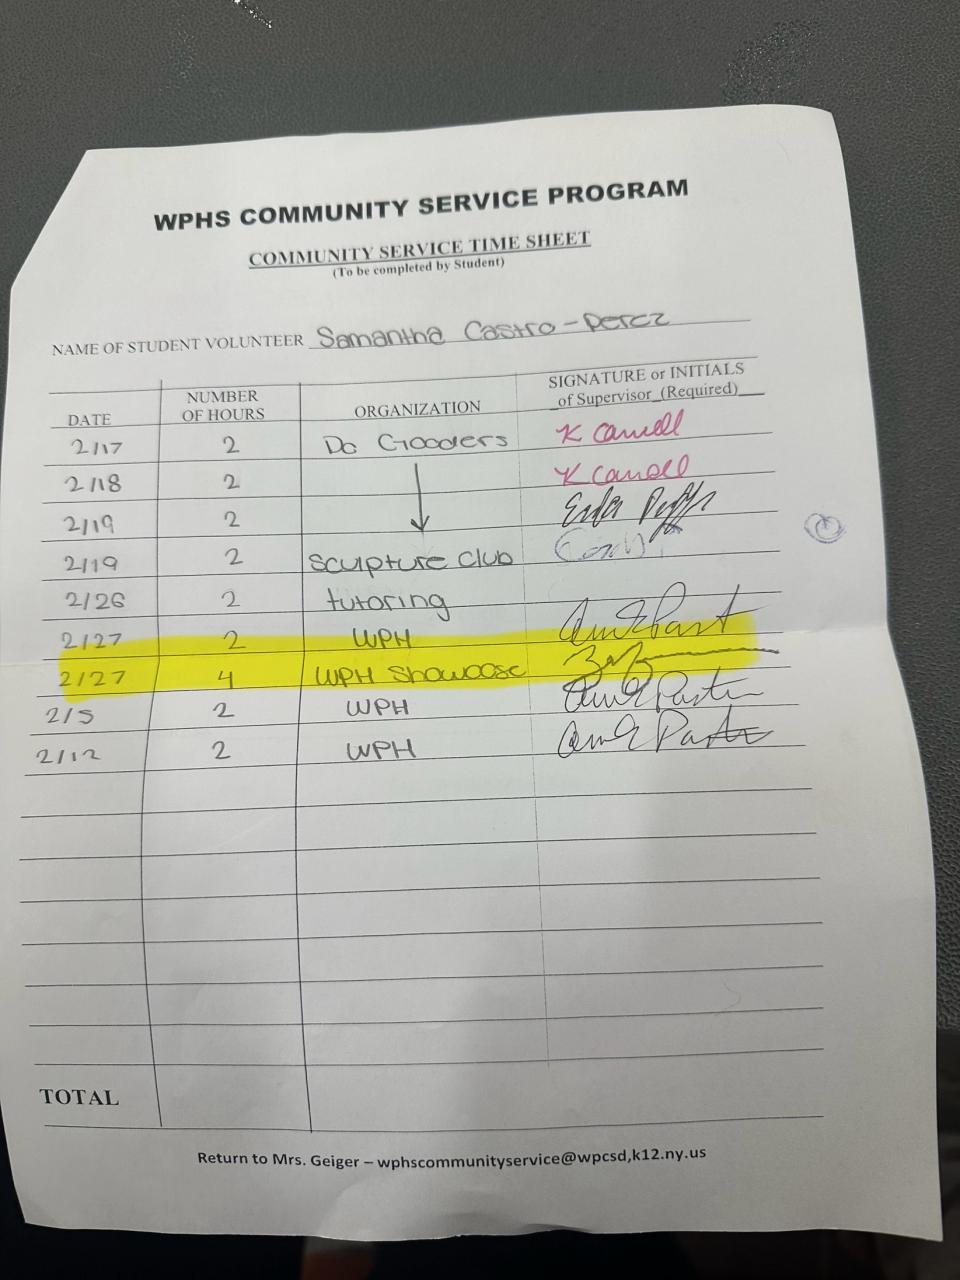 WPHS COMMUNITY SERVICE PROGRAM
COMMUNITY SERVICE TIME SHEET
(To be completed by Student)
NAME OF STUDENT VOLUNTEER Samantha Castro-Perez
DATE NUMBER OF HOURS ORGANIZATION SIGNATURE or INITIALS of Supervisor (Required)
2/17 2 Do Gooders K
2/18 2 K
2/19 2
2/19 2 Sculpture Club
2/26 2 tutoring
2/27 2 WPH
2/27 4 WPH Showcase
2/5 2 WPH
2/12 2 WPH
TOTAL
Return to Mrs. Geiger – wphscommunityservice@wpcsd,k12.ny.us